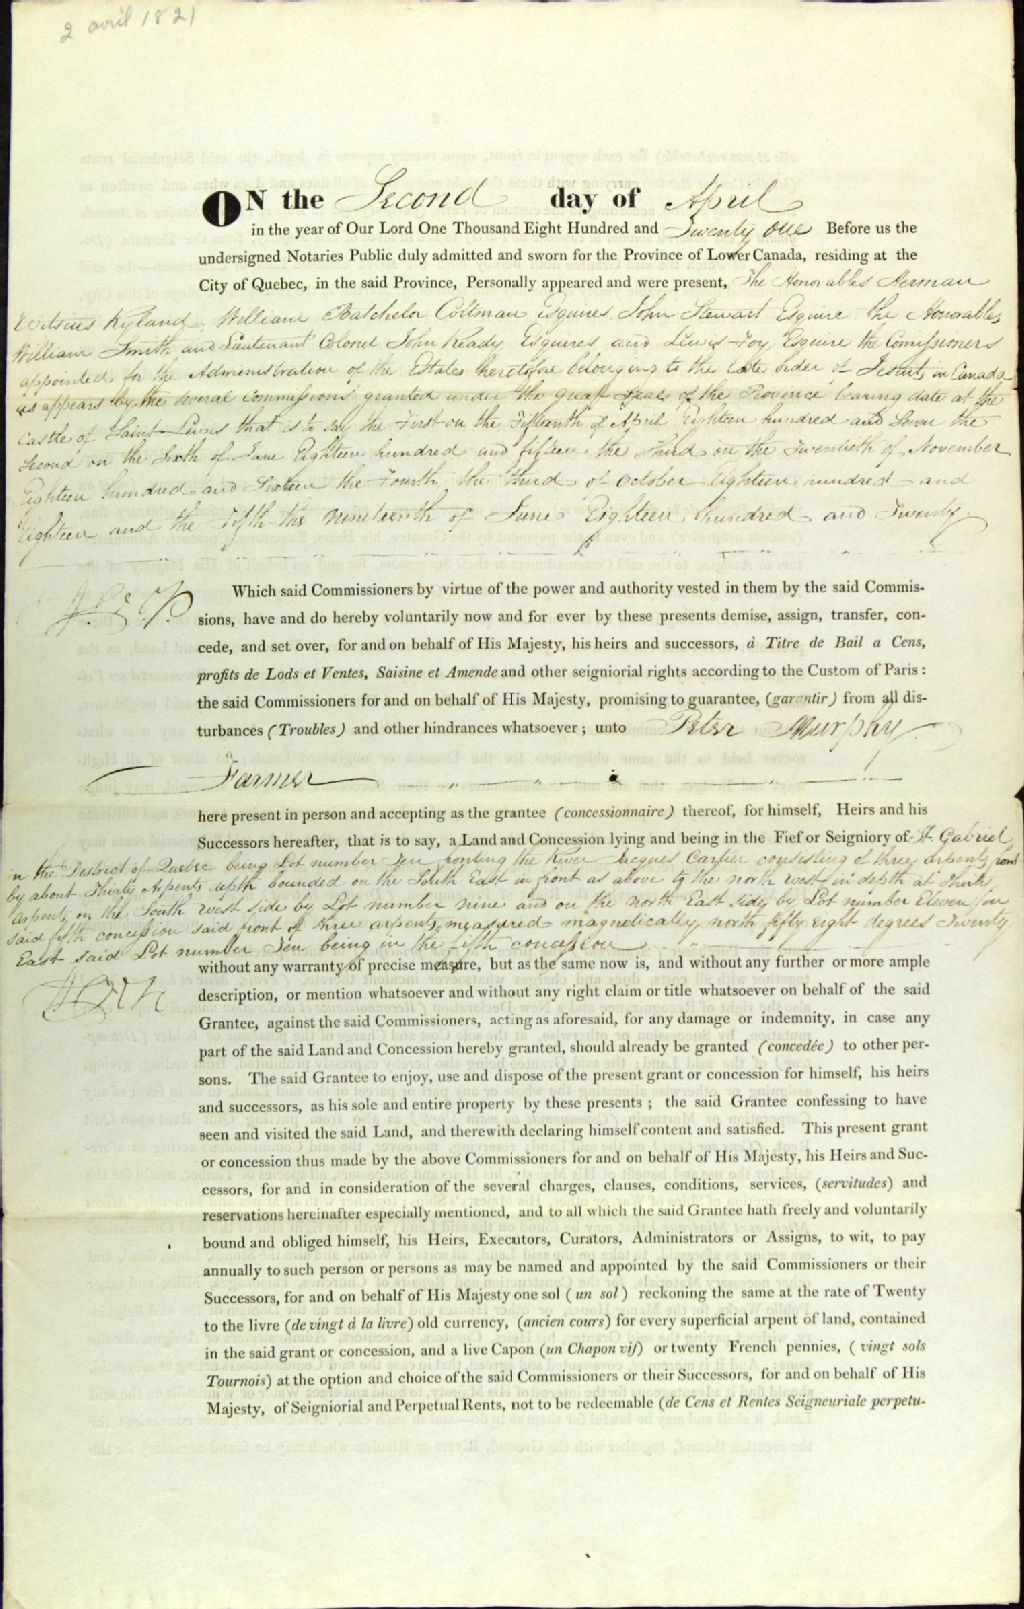 2 avril 1821
ON the Second day of April
in the year of Our Lord One Thousand Eight Hundred and Twenty One Before us the
undersigned Notaries Public duly admitted and sworn for the Province of Lower Canada, residing at the
City of Quebec, in the said Province, Personally appeared and were present, The Honorables Herman
Witsius Ryland, William Batchelor Coltman Esquires, John Stewart Esquire the Honorable
William Smith, and Lieutenant Colonel John Ready, Esquires, and Lewis Foy, Esquire the Commissioners
appointed for the Administration of the Estates heretofore belonging to the late order of Jesuits in Canada
as appears by the several Commissions granted under the great Seal of the Province bearing date at the
Castle of Saint Lewis that is to say the First on the Fifteenth of April Eighteen hundred and Seven the
Second on the Sixth of June Eighteen hundred and fifteen the third on the Twentieth of November
Eighteen hundred and Sixteen the Fourth the third of October Eighteen hundred and
Eighteen and the Fifth the nineteenth of June Eighteen hundred and Twenty.
Which said Commissioners by virtue of the power and authority vested in them by the said Commis-
sions, have and do hereby voluntarily now and for ever by these presents demise, assign, transfer, con-
cede, and set over, for and on behalf of His Majesty, his heirs and successors, à Titre de Bail a Cens,
profits de Lods et Ventes, Saisine et Amende and other seigniorial rights according to the Custom of Paris :
the said Commissioners for and on behalf of His Majesty, promising to guarantee, (garantir) from all dis-
turbances (Troubles) and other hindrances whatsoever ; unto Peter Murphy
Farmer
here present in person and accepting as the grantee (concessionnaire) thereof, for himself, Heirs and his
Successors hereafter, that is to say, a Land and Concession lying and being in the Fief or Seigniory of St. Gabriel
in the District of Quebec being Lot number Ten fronting the River Jacques Cartier consisting of three arpents front
by about Thirty Arpents depth bounded on the South East in front as above to the north west in depth at Thirty
arpents on the South west side by Lot number nine and on the north East side by Lot number Eleven in
said fifth concession said front of three arpents measured magnetically north fifty eight degrees Twenty
East said Lot number Ten being in the fifth concession
without any warranty of precise measure, but as the same now is, and without any further or more ample
description, or mention whatsoever and without any right claim or title whatsoever on behalf of the said
Grantee, against the said Commissioners, acting as aforesaid, for any damage or indemnity, in case any
part of the said Land and Concession hereby granted, should already be granted (concedée) to other per-
sons. The said Grantee to enjoy, use and dispose of the present grant or concession for himself, his heirs
and successors, as his sole and entire property by these presents ; the said Grantee confessing to have
seen and visited the said Land, and therewith declaring himself content and satisfied. This present grant
or concession thus made by the above Commissioners for and on behalf of His Majesty, his Heirs and Suc-
cessors, for and in consideration of the several charges, clauses, conditions, services, (servitudes) and
reservations hereinafter especially mentioned, and to all which the said Grantee hath freely and voluntarily
bound and obliged himself, his Heirs, Executors, Curators, Administrators or Assigns, to wit, to pay
annually to such person or persons as may be named and appointed by the said Commissioners or their
Successors, for and on behalf of His Majesty one sol (un sol) reckoning the same at the rate of Twenty
to the livre (de vingt à la livre) old currency, (ancien cours) for every superficial arpent of land, contained
in the said grant or concession, and a live Capon (un Chapon vif) or twenty French pennies, (vingt sols
Tournois) at the option and choice of the said Commissioners or their Successors, for and on behalf of His
Majesty, of Seigniorial and Perpetual Rents, not to be redeemable (de Cens et Rentes Seigneuriale perpetu-